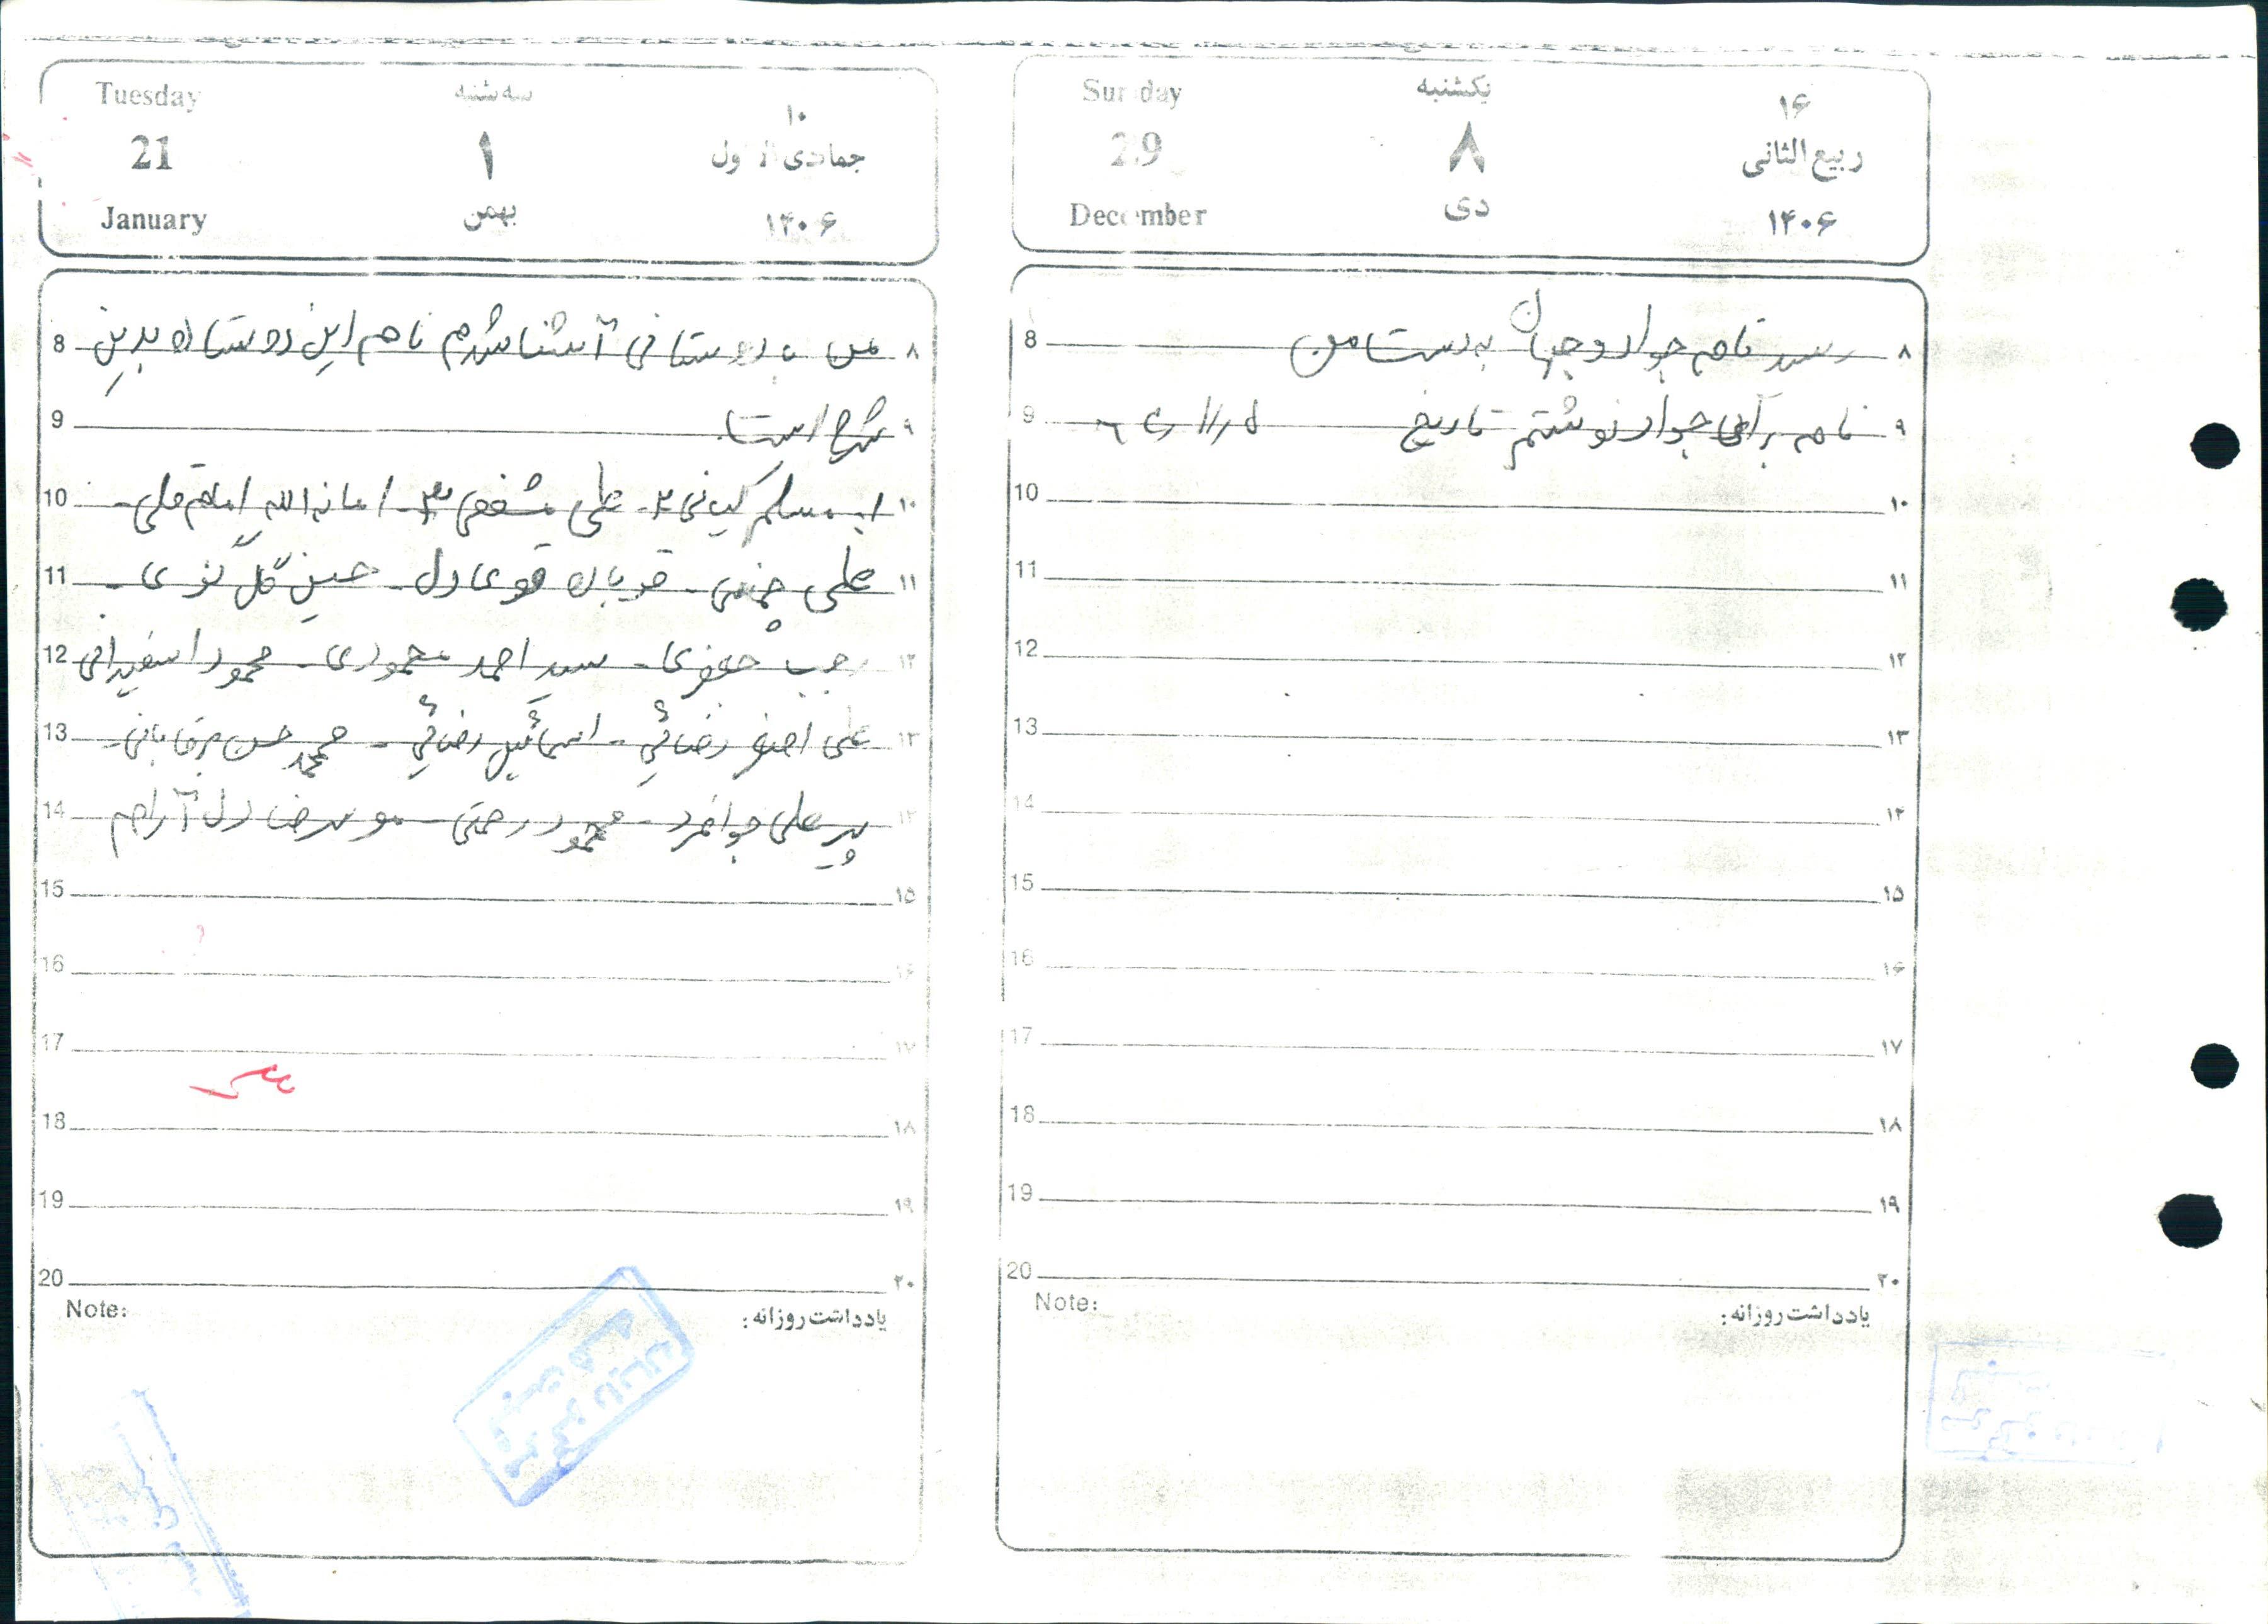 یکشنبه
Sunday
۸
29
دی
December
۱۶
ربیع الثانی
۱۴۰۶
8 رسید نامه جواد و جهان به دست من ۸
9 نامه برای جواد نوشتم تاریخ ۹
10 ۱۰
11 ۱۱
12 ۱۲
13 ۱۳
14 ۱۴
15 ۱۵
16 ۱۶
17 ۱۷
18 ۱۸
19 ۱۹
20 ۲۰
Note: یادداشت روزانه :
سه شنبه
Tuesday
۱
21
بهمن
January
۱۰
جمادی الاول
۱۴۰۶
8 من با دوستانی آشنا شدم نام این دوستان بدین ۸
9 شرح است ۹
10 ۱- مسلم کیانی ۲- علی مشفقی ۳- امان الله امام قلی - ۱۰
11 علی - قربان قوی دل - حسین گل - ۱۱
12 رجب جعفری - سید احمد محمودی - محمود ۱۲
13 علی اصغر رضائی - اسمائیل رضائی - محمد حسن - ۱۳
14 پیر علی جوانمرد - محمود رحمتی - دل آرام ۱۴
15 ۱۵
16 ۱۶
17 ۱۷
18 ۱۸
19 ۱۹
20 ۲۰
Note: یادداشت روزانه :